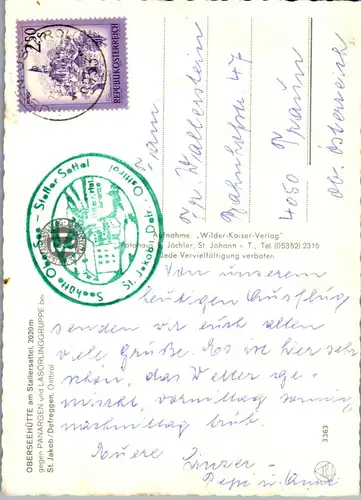 2.50
REPUBLIK ÖSTERREICH
Seehütte Ober See - Staller Sattel
St. Jakob i. Def. Osttirol
Fam
Walterstein
Bahnhofstr 47
4050 Traun
Ob. Österreich
Aufnahme. „Wilder-Kaiser-Verlag"
Jöchler, St. Johann i. T., Tel. (05352) 2315
Jede Vervielfältigung verboten
Von unserem
heutigen Ausflug
senden wir euch allen
viele Grüße. Es ist hier sehr
schön, das Wetter ge-
mischt, vormittag sonnig
nachmittag trüb.
Euere Linzer
Pepi u. Anni
OBERSEEHÜTTE am Stallersattel, 2020m
gegen PANARGEN und LASÖRLINGGRUPPE bei
St. Jakob/Defreggen, Osttirol
3363